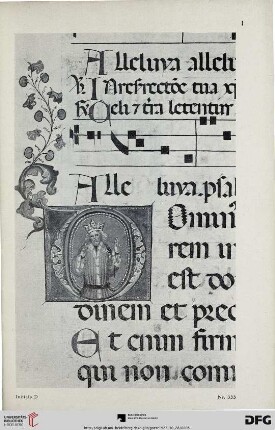 1
Alleluya allelu
℣. I N resrectõe tua xp̄
℟. Celi ⁊ t̄ra letentur
Alle luya. psal
Domin
rem in
est do
dinem et prec
Et enim firm
qui non com
Initiale D
Nr. 333
UNIVERSITÄTS-
BIBLIOTHEK
HEIDELBERG
DFG